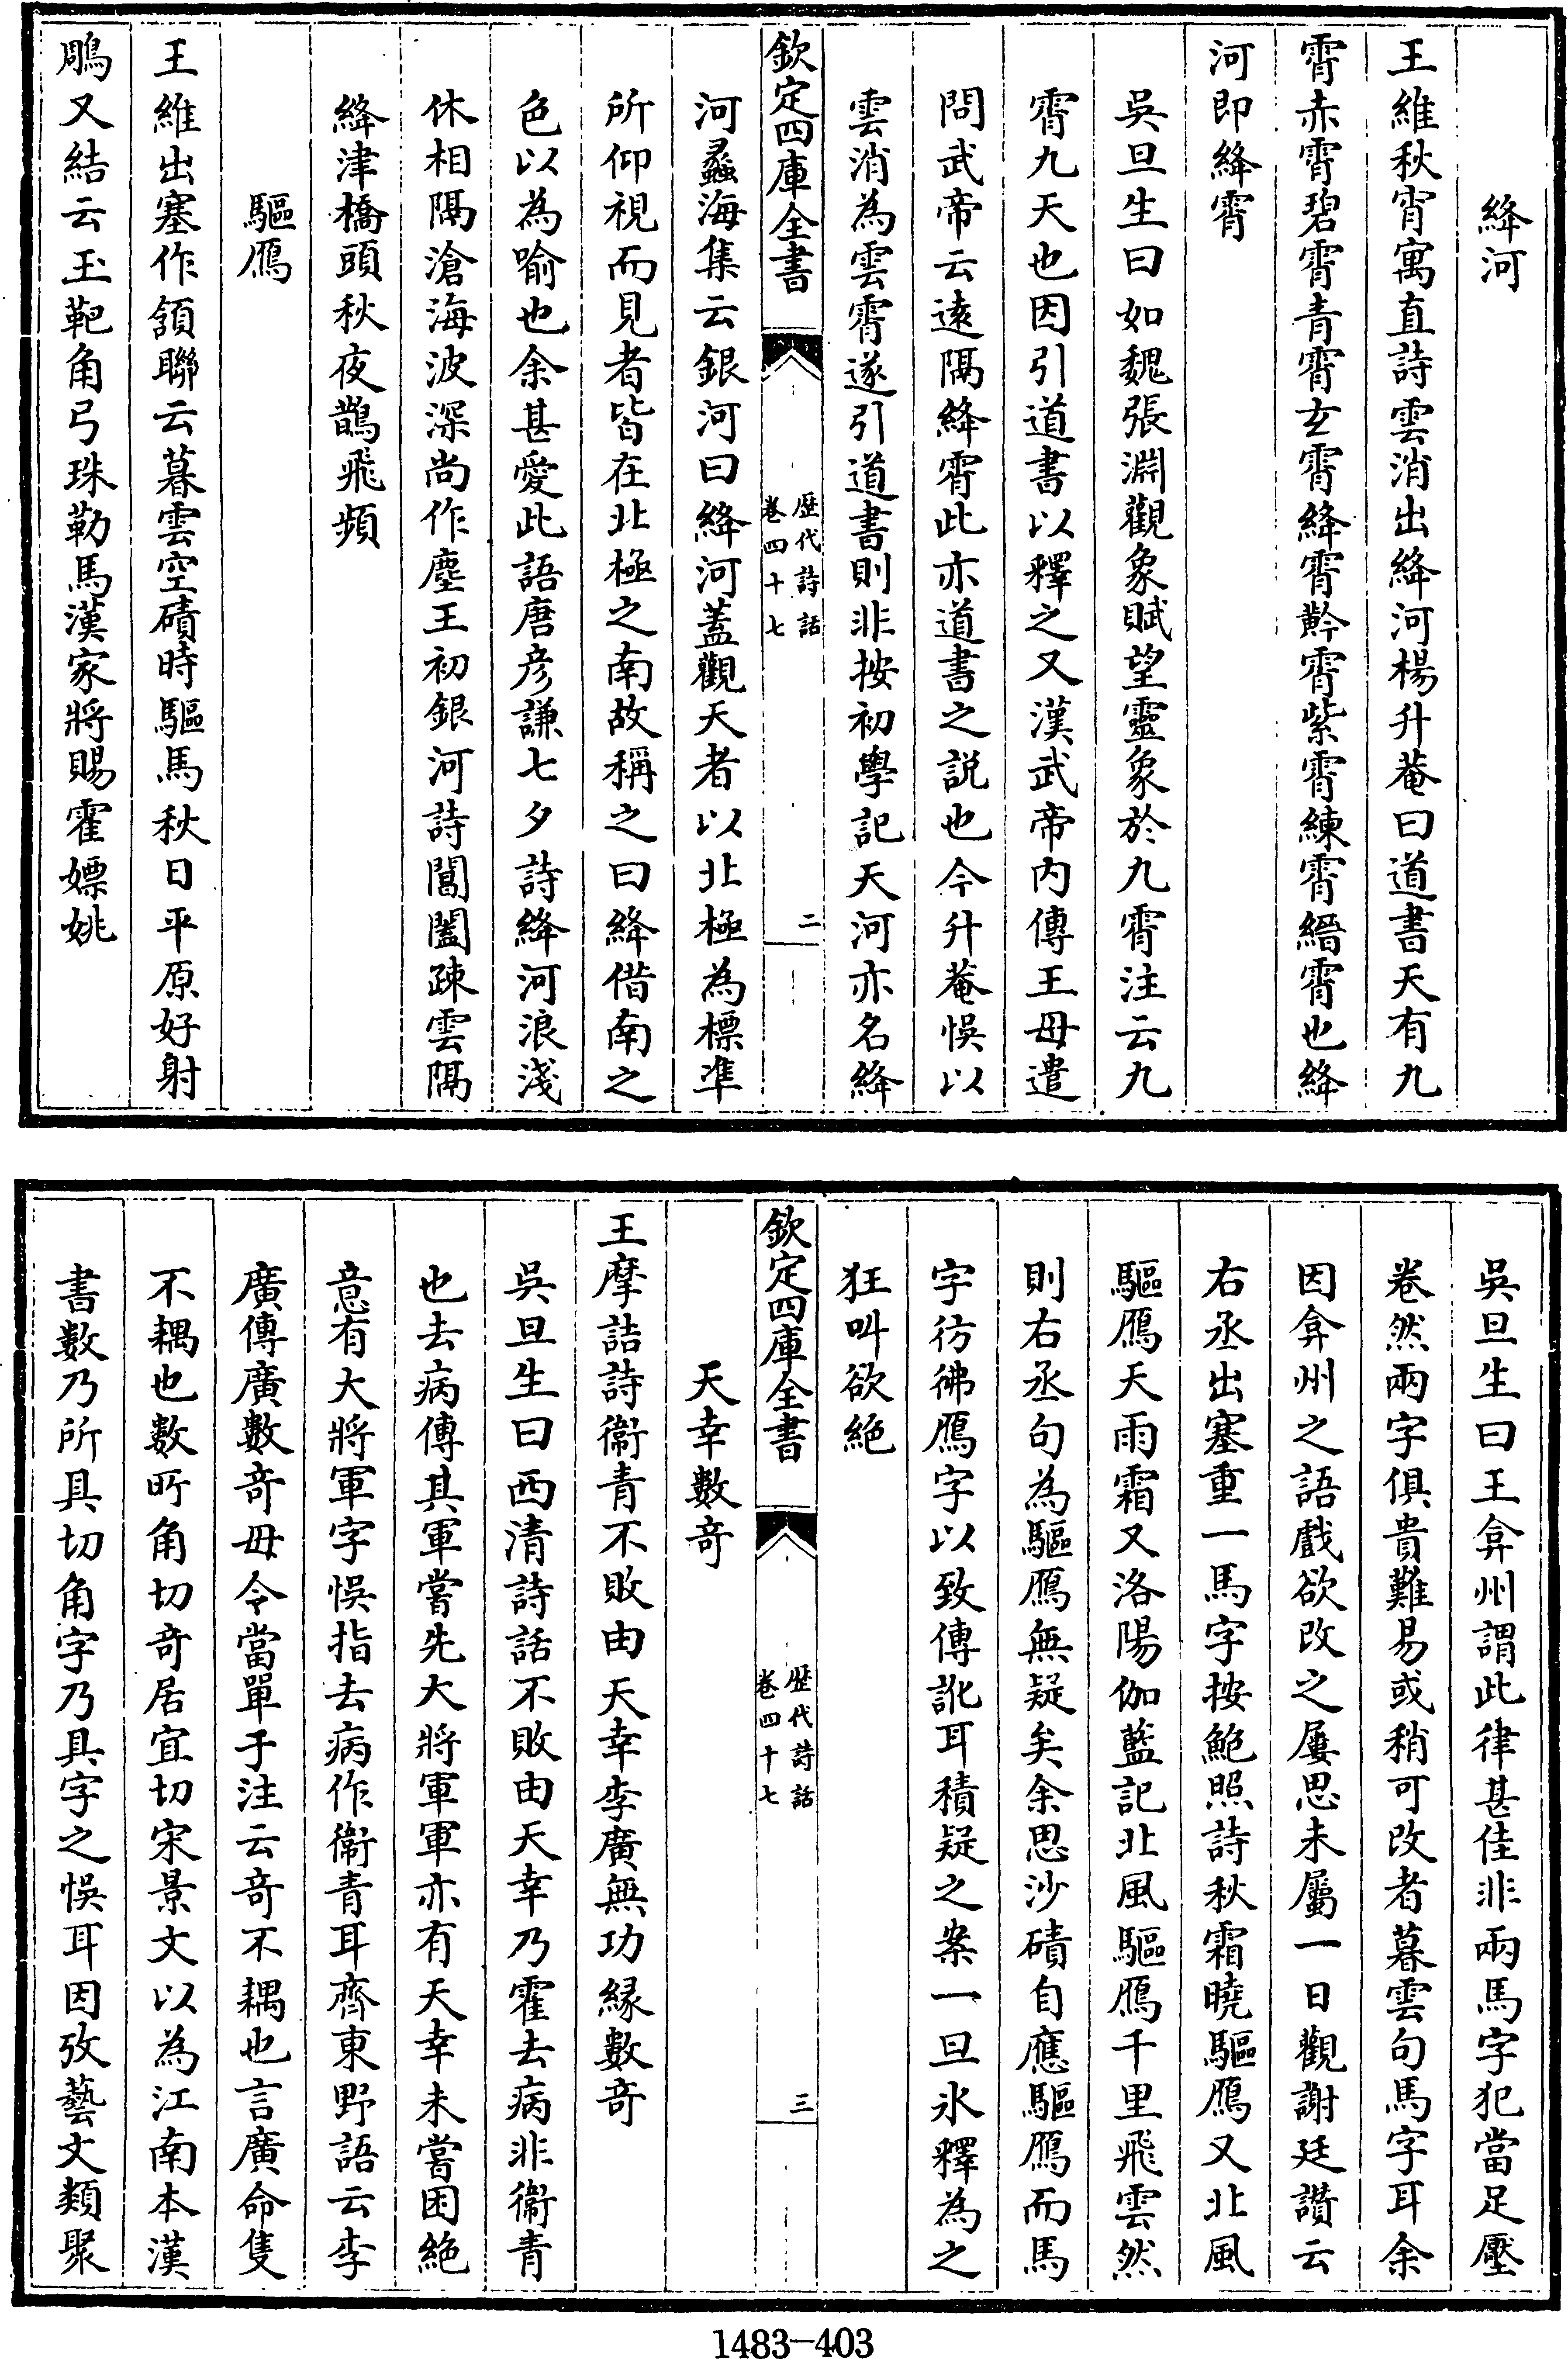 絳河
王維秋宵寓直詩雲消出絳河楊升菴曰道書天有九
霄赤霄碧霄青霄玄霄絳霄黅霄紫霄練霄縉霄也絳
河即絳霄
吳旦生曰如魏張淵觀象賦望靈象於九霄注云九
霄九天也因引道書以釋之又漢武帝内傳王母遣
問武帝云遠隔絳霄此亦道書之説也今升菴悞以
雲消為雲霄遂引道書則非按初學記天河亦名絳
欽定四庫全書
歴代詩話
卷四十七
二
河蠡海集云銀河曰絳河蓋觀天者以北極為標凖
所仰視而見者皆在北極之南故稱之曰絳借南之
色以為喻也余甚愛此語唐彦謙七夕詩絳河浪淺
休相隔滄海波深尚作塵王初銀河詩閶闔疎雲隔
絳津橋頭秋夜鵲飛頻
驅鴈
王維出塞作頷聯云暮雲空磧時驅馬秋日平原好射
鵰又結云玉靶角弓珠勒馬漢家將賜霍嫖姚
吳旦生曰王弇州謂此律甚佳非兩馬字犯當足壓
卷然兩字俱貴難易或稍可改者暮雲句馬字耳余
因弇州之語戲欲改之屢思未屬一日觀謝廷讚云
右丞出塞重一馬字按鮑照詩秋霜曉驅鴈又北風
驅鴈天雨霜又洛陽伽藍記北風驅鴈千里飛雲然
則右丞句為驅鴈無疑矣余思沙磧自應驅鴈而馬
字彷彿鴈字以致傳訛耳積疑之案一旦氷釋為之
狂叫欲絶
欽定四庫全書
歴代詩話
卷四十七
三
天幸數竒
王摩詰詩衞青不敗由天幸李廣無功緣數竒
吳旦生曰西清詩話不敗由天幸乃霍去病非衞青
也去病傳其軍嘗先大將軍軍亦有天幸未嘗困絶
意有大將軍字悞指去病作衞青耳齊東野語云李
廣傳廣數竒毋令當單于注云竒不耦也言廣命隻
不耦也數所角切竒居宜切宋景文以為江南本漢
書數乃所具切角字乃具字之悞耳因攷藝文類聚
1483—403